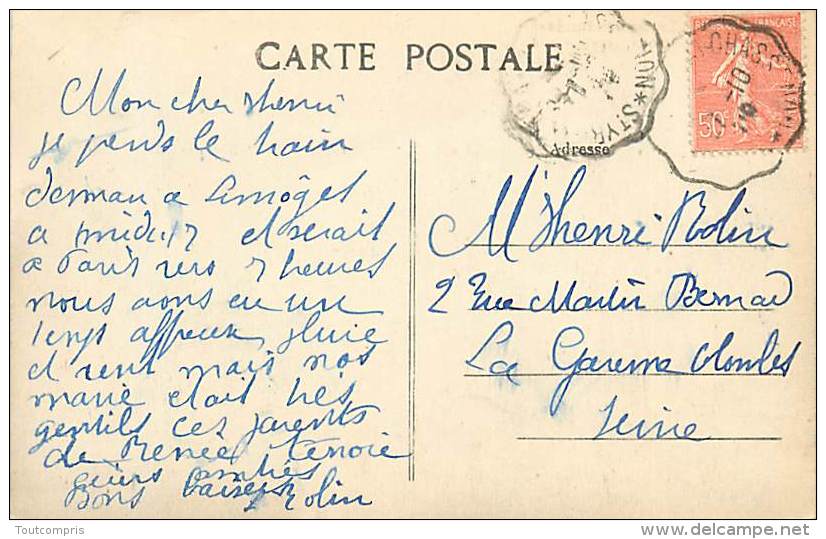 CARTE POSTALE
Adresse
Mon cher Henri
je prends le train
demain a Limoges
a midi 17 et serait
a Paris vers 7 heures
nous avons eu un
temps affreux pluie
et vent mais nos
marié etait très
gentils ces parents
de Renée
amitiés
Bons baisers Rolin
Mr Henri Rolin
2 Rue Martin Bernard
La Garenne Colombes
Seine
50
Toutcompris
delcampe.net